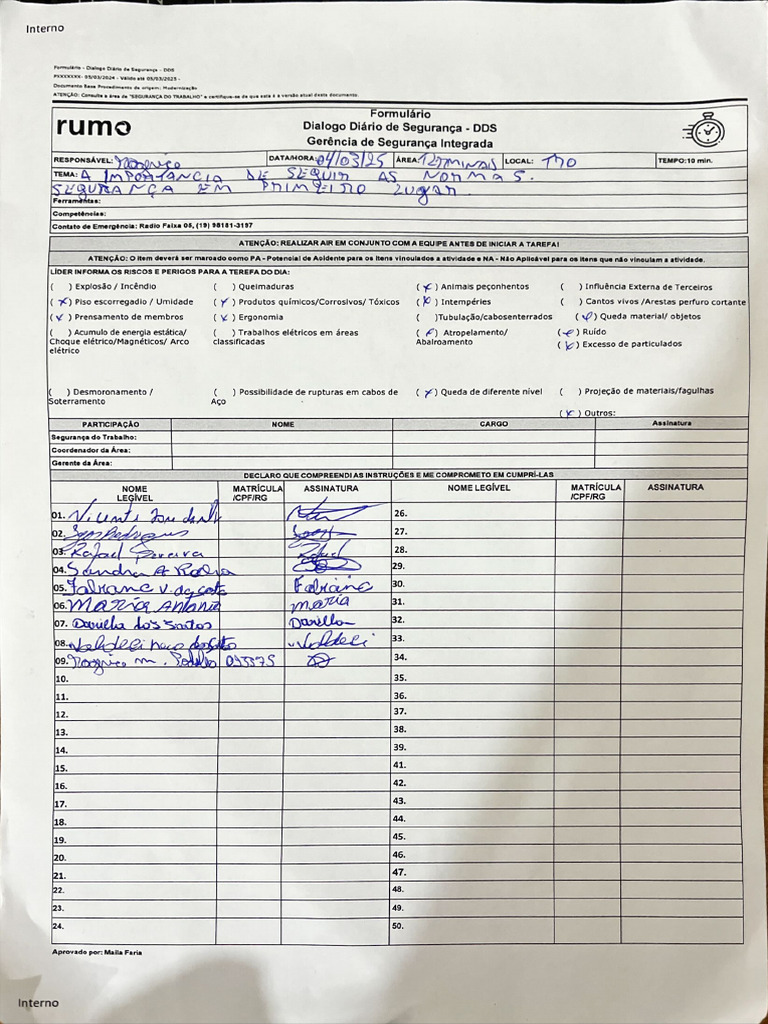 Interno
Formulário - Dialogo Diário de Segurança - DDS
PXXXXXXX- 05/03/2024 - Válido até 05/03/2025 -
Documento Base Procedimento de origem: Modernização
ATENÇÃO: Consulte a área de "SEGURANÇA DO TRABALHO" e certifique-se de que esta é a versão atual deste documento.
rumo
Formulário
Dialogo Diário de Segurança - DDS
Gerência de Segurança Integrada
RESPONSÁVEL: DATA/HORA: 04/03/25 ÁREA: TERMINAIS LOCAL: TRO TEMPO:10 min.
TEMA: A IMPORTANCIA DE SEGUIR AS NORMAS.
SEGURANÇA EM PRIMEIRO LUGAR.
Ferramentas:
Competências:
Contato de Emergência: Radio Faixa 05, (19) 98181-3197
ATENÇÃO: REALIZAR AIR EM CONJUNTO COM A EQUIPE ANTES DE INICIAR A TAREFA!
ATENÇÃO: O item deverá ser marcado como PA - Potencial de Acidente para os itens vinculados a atividade e NA - Não Aplicável para os itens que não vinculam a atividade.
LÍDER INFORMA OS RISCOS E PERIGOS PARA A TEREFA DO DIA:
( ) Explosão / Incêndio ( ) Queimaduras (x) Animais peçonhentos ( ) Influência Externa de Terceiros
(x) Piso escorregadio / Umidade (x) Produtos químicos/Corrosivos/ Tóxicos (x) Intempéries ( ) Cantos vivos /Arestas perfuro cortante
(x) Prensamento de membros (x) Ergonomia ( )Tubulação/cabosenterrados (x) Queda material/ objetos
( ) Acumulo de energia estática/ ( ) Trabalhos elétricos em áreas (x) Atropelamento/ (x) Ruído
Choque elétrico/Magnéticos/ Arco classificadas Abalroamento (x) Excesso de particulados
elétrico
( ) Desmoronamento / ( ) Possibilidade de rupturas em cabos de (x) Queda de diferente nível ( ) Projeção de materiais/fagulhas
Soterramento Aço
(x) Outros:
PARTICIPAÇÃO NOME CARGO Assinatura
Segurança do Trabalho:
Coordenador da Área:
Gerente da Área:
DECLARO QUE COMPREENDI AS INSTRUÇÕES E ME COMPROMETO EM CUMPRÍ-LAS
NOME MATRÍCULA ASSINATURA NOME LEGÍVEL MATRÍCULA ASSINATURA
LEGÍVEL /CPF/RG /CPF/RG
01. Vicente 26.
02. 27.
03. Rafael 28.
04. Sandra A 29.
05. Fabiane V. da Costa Fabiane 30.
06. Maria Antonia maria 31.
07. Darilha dos Santos Darilha 32.
08. Valdeli Valdeli 33.
09. 34.
10. 35.
11. 36.
12. 37.
13. 38.
14. 39.
15. 41.
16. 42.
17. 43.
18. 44.
19. 45.
20. 46.
21. 47.
22. 48.
23. 49.
24. 50.
Aprovado por: Maila Faria
Interno